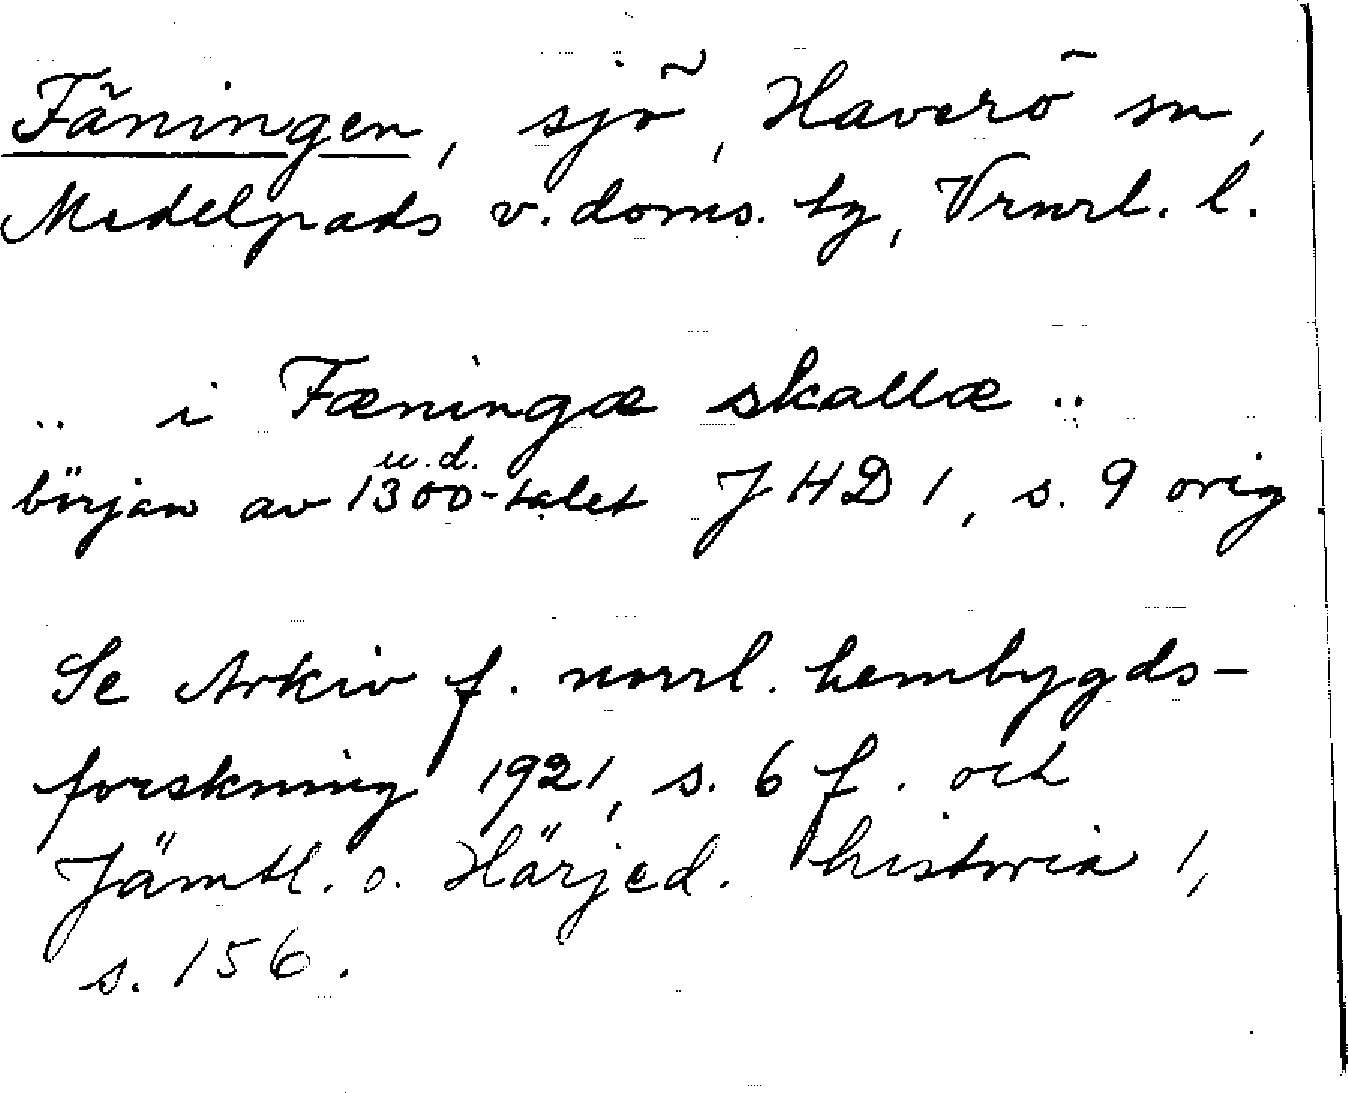 Fäningen, sjö, Haverö sn,
Medelpads v. doms. tg, Vrnrl. l.
.. i Fæningæ skallæ ..
u. d.
början av 1300-talet JHD 1, s. 9 orig
Se Arkiv f. norrl. hembygds-
forskning 1921, s. 6 f. och
Jämtl. o. Härjed. historia 1,
s. 156.